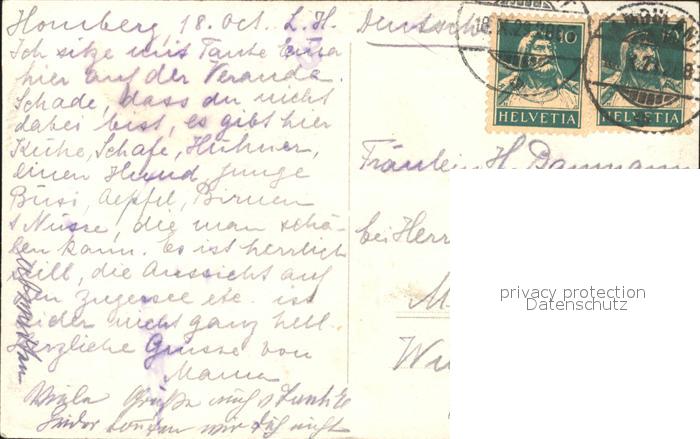 Homberg 18. Oct. L. H.
Ich sitze mit Tante Luisa
hier auf der Veranda.
Schade, dass du nicht
dabei bist, es gibt hier
Kühe, Schafe, Hühner,
einen Hund, junge
Büsi, Aepfel, Birnen
& Nüsse, die man schä-
len kann. Es ist herrlich
still, die Aussicht auf
den Zugersee etc. ist
leider nicht ganz hell.
Herzliche Grüsse von
Mama
Viele Grüsse auch
leider können wir dich nicht
Deutschl
10
HELVETIA
HELVETIA
Fräulein H. Dammann
bei Herr
M
privacy protection
Datenschutz